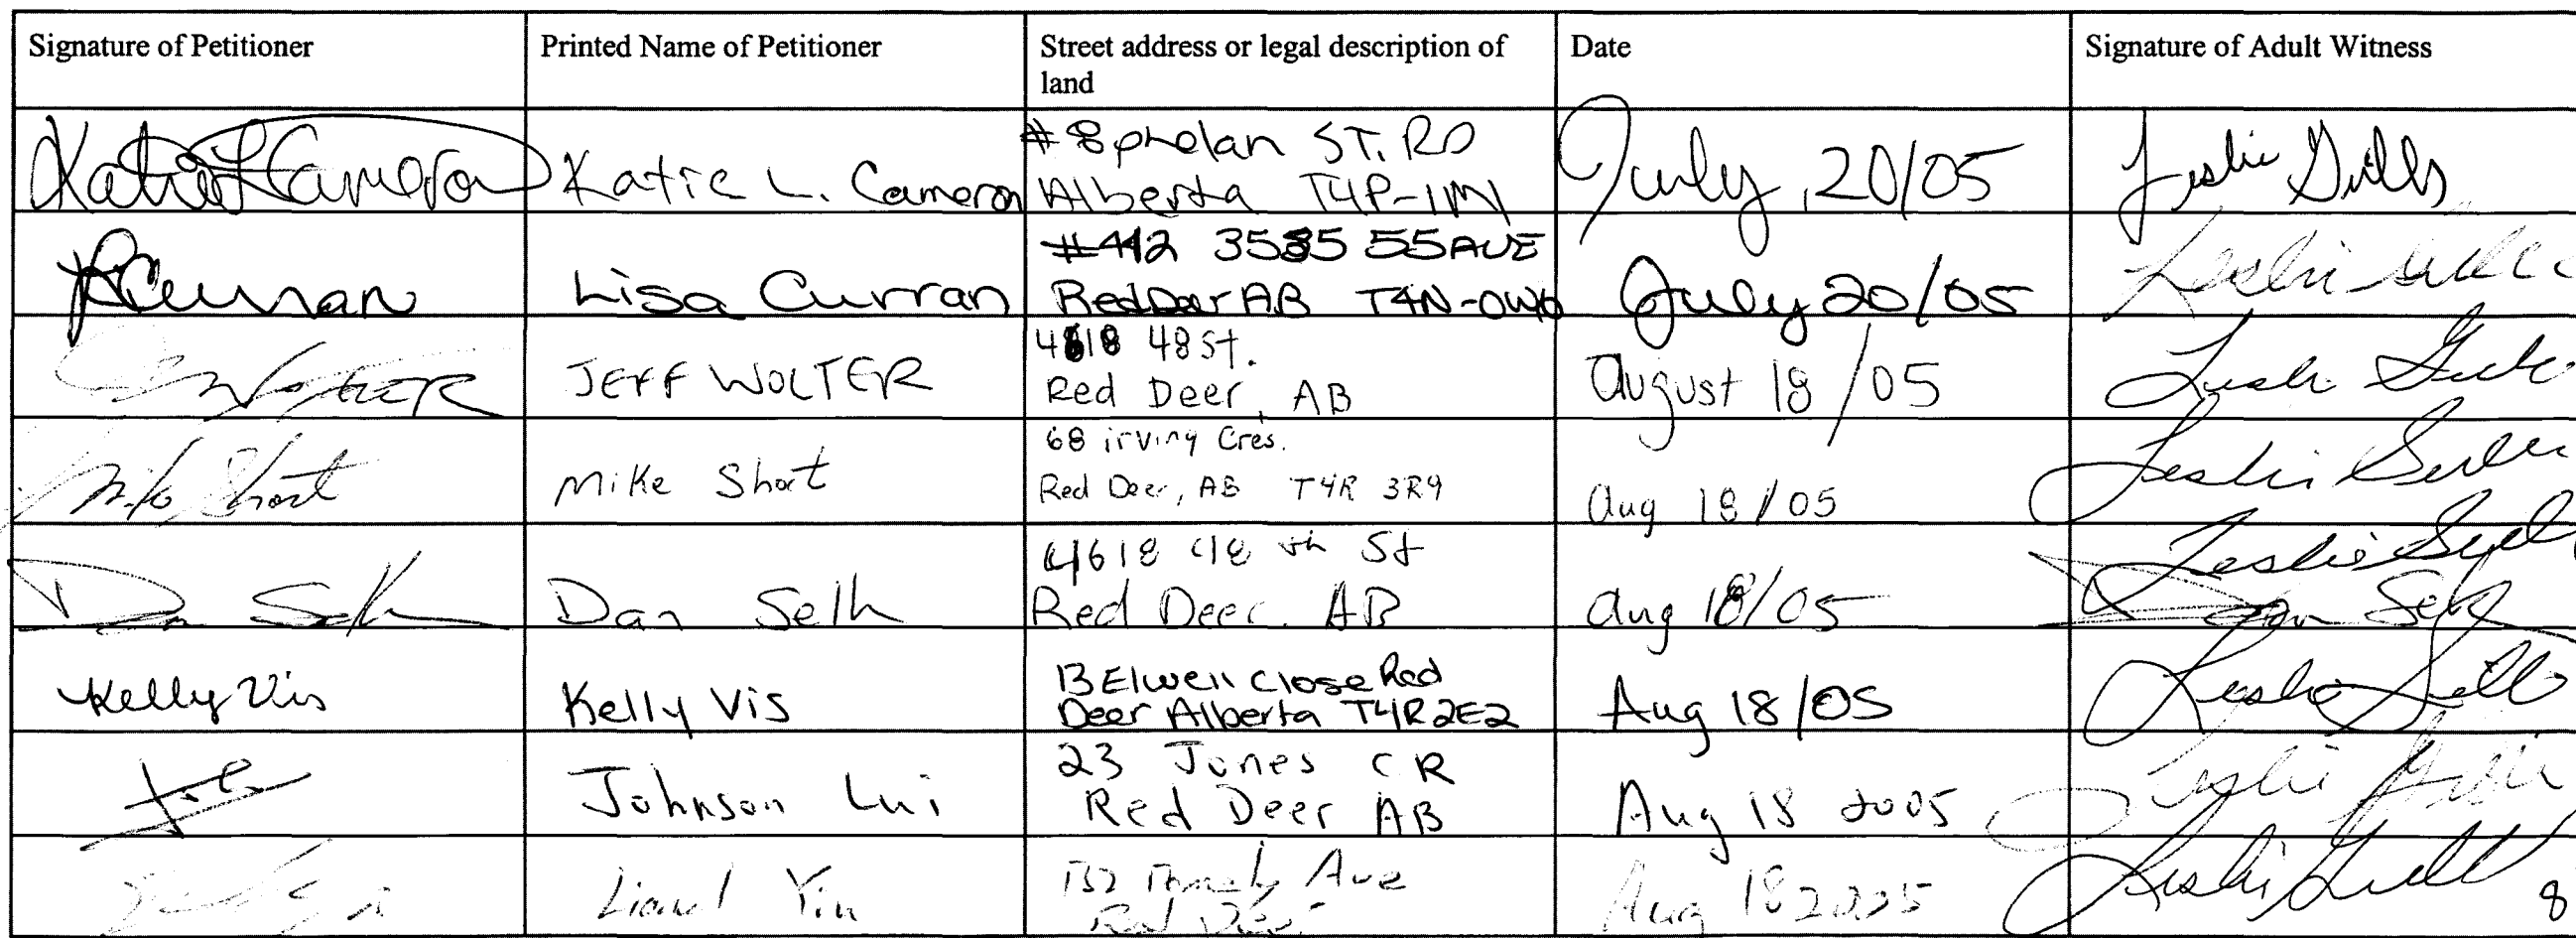 Signature of Petitioner
Printed Name of Petitioner
Street address or legal description of
land
Date
Signature of Adult Witness
Katie L Cameron
Katie L. Cameron
#8 phelan ST. RD
Alberta T4P-1M1
July, 20/05
Leslie Gills
LCurran
Lisa Curran
#412 3585 55AVE
Red Deer AB T4N-0W0
July 20/05
Leslie
WOLTER
JEFF WOLTER
4618 48 St.
Red Deer, AB
August 18/05
Mike Short
Mike Short
68 irving Cres.
Red Deer, AB T4R 3R9
Aug 18/05
Leslie
Dan Selk
Dan Selk
4618 48 th St
Red Deer. AB
Aug 18/05
Leslie
Dan Selk
Kelly Vis
Kelly Vis
13 Elwell Close Red
Deer Alberta T4R2E2
Aug 18/05
Leslie
Johnson Lui
23 Jones CR
Red Deer AB
Aug 18 2005
Leslie
Lionel Yin
Ave
Red Deer
Aug 18 2005
Leslie
8